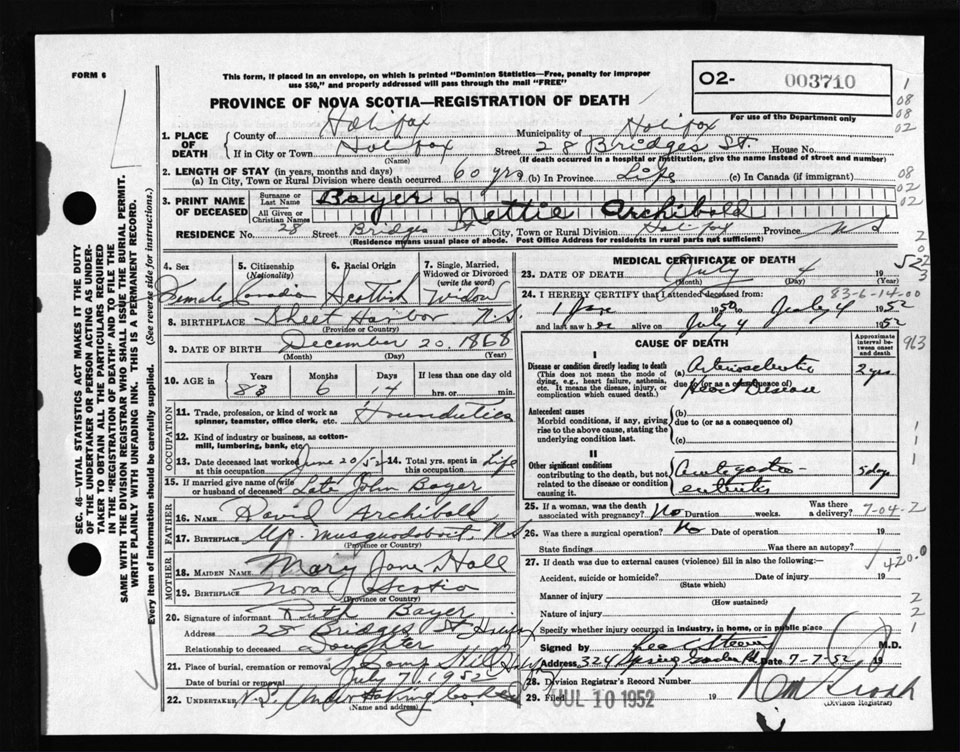 FORM 6
This form, if placed in an envelope, on which is printed "Dominion Statistics—Free, penalty for improper
use $50," and properly addressed will pass through the mail "FREE"
O2- 003710
For use of the Department only
PROVINCE OF NOVA SCOTIA—REGISTRATION OF DEATH
1
08
08
02
1. PLACE OF DEATH
County of Halifax Municipality of Halifax
If in City or Town Halifax Street 28 Bridges St. House No.
(Name) (If death occurred in a hospital or institution, give the name instead of street and number)
2. LENGTH OF STAY (in years, months and days)
(a) In City, Town or Rural Division where death occurred 60 yrs (b) In Province Life (c) In Canada (if immigrant)
08
02
02
3. PRINT NAME OF DECEASED
Surname or Last Name Bayer
All Given or Christian Names Nettie Archibald
RESIDENCE No. 28 Street Bridges St City, Town or Rural Division Halifax Province N S
(Residence means usual place of abode. Post Office Address for residents in rural parts not sufficient)
SEC. 46—VITAL STATISTICS ACT MAKES IT THE DUTY
OF THE UNDERTAKER OR PERSON ACTING AS UNDER-
TAKER TO OBTAIN ALL THE PARTICULARS REQUIRED
IN THE "REGISTRATION OF DEATH" AND TO FILE THE
SAME WITH THE DIVISION REGISTRAR WHO SHALL ISSUE THE BURIAL PERMIT.
WRITE PLAINLY WITH UNFADING INK. THIS IS A PERMANENT RECORD.
Every item of Information should be carefully supplied. (See reverse side for instructions.)
4. Sex
Female
5. Citizenship
(Nationality)
Canadian
6. Racial Origin
Scottish
7. Single, Married,
Widowed or Divorced
(write the word)
Widow
8. BIRTHPLACE Sheet Harbor N.S.
(Province or Country)
9. DATE OF BIRTH December 20. 1868
(Month) (Day) (Year)
10. AGE in
Years Months Days If less than one day old
83 6 14 hrs. or min.
OCCUPATION
11. Trade, profession, or kind of work as
spinner, teamster, office clerk, etc. Housduties
12. Kind of industry or business, as cotton-
mill, lumbering, bank, etc.
13. Date deceased last worked
at this occupation June 20/52
14. Total yrs. spent in
this occupation Life
15. If married give name of wife
or husband of deceased Late John Bayer
FATHER
16. NAME David Archibald
17. BIRTHPLACE Up. Musquodoboit, N.S.
(Province or Country)
MOTHER
18. MAIDEN NAME Mary Jane Hall
19. BIRTHPLACE Nova Scotia
(Province or Country)
20. Signature of informant Ruth Bayer
Address 28 Bridges St Halifax
Relationship to deceased Daughter
21. Place of burial, cremation or removal Camp Hill
Date of burial or removal July 7, 1952
22. UNDERTAKER N.S. Undertaking
(Name and address)
MEDICAL CERTIFICATE OF DEATH
23. DATE OF DEATH July 4 19 52
(Month) (Day) (Year)
83-6-14-00
24. I HEREBY CERTIFY that I attended deceased from:
1950 to July 4 1952
and last saw her alive on July 4 1952
963
CAUSE OF DEATH
Approximate
interval between
onset
and death
I
Disease or condition directly leading to death
(This does not mean the mode of
dying, e.g., heart failure, asthenia,
etc. It means the disease, injury, or
complication which caused death.)
(a) Arteriosclerotic
due to (or as a consequence of)
Heart Disease
2 yrs
Antecedent causes
Morbid conditions, if any, giving
rise to the above cause, stating the
underlying condition last.
(b)
due to (or as a consequence of)
(c)
1
1
1
II
Other significant conditions
contributing to the death, but not
related to the disease or condition
causing it.
Acute gastro-
enteritis
5 days
25. If a woman, was the death
associated with pregnancy? No Duration weeks. Was there
a delivery? 7-04-2
26. Was there a surgical operation? No Date of operation 19
State findings Was there an autopsy?
1420.0
27. If death was due to external causes (violence) fill in also the following:
Accident, suicide or homicide? Date of injury 19
(State which)
Manner of injury
(How sustained)
Nature of injury
2
2
1
Specify whether injury occurred in industry, in home, or in public place
Signed by M.D.
Address 324 Spring Garden Rd Date 7-7-52 19
28. Division Registrar's Record Number
29. Filed JUL 10 1952 19
(Division Registrar)